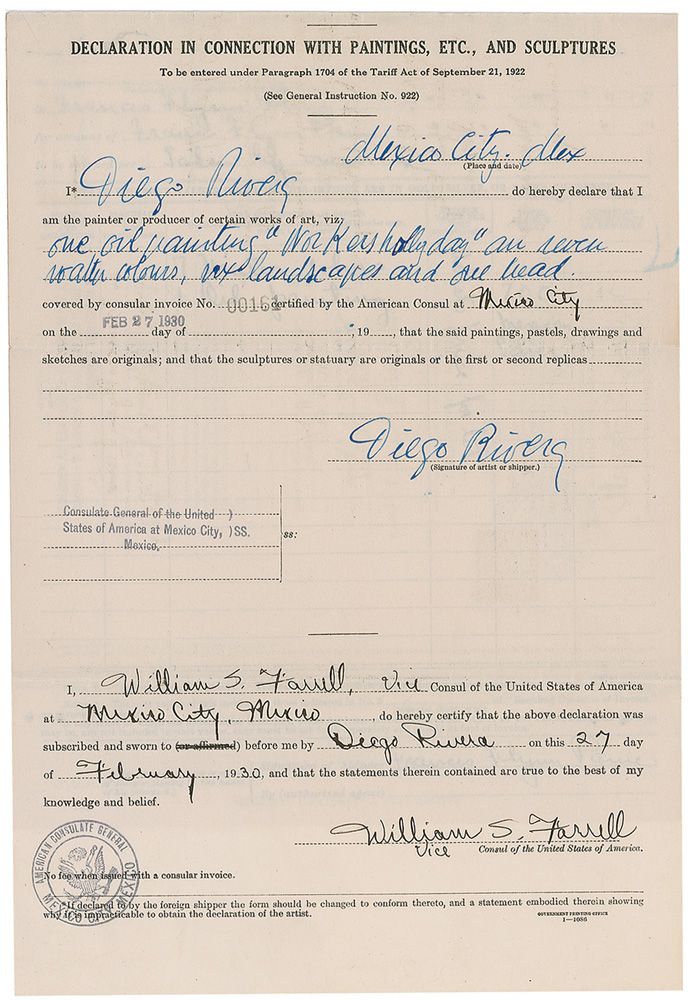 DECLARATION IN CONNECTION WITH PAINTINGS, ETC., AND SCULPTURES
To be entered under Paragraph 1704 of the Tariff Act of September 21, 1922
(See General Instruction No. 922)
Mexico City. Mex
(Place and date)
I* Diego Rivera do hereby declare that I
am the painter or producer of certain works of art, viz,
one oil painting "Workers hollyday" an seven
watter colours, six landscapes and one head.
covered by consular invoice No. 00161 certified by the American Consul at Mexico City
on the FEB 27 1930 day of , 19 , that the said paintings, pastels, drawings and
sketches are originals; and that the sculptures or statuary are originals or the first or second replicas
Diego Rivera
(Signature of artist or shipper.)
Consulate General of the United )
States of America at Mexico City, )SS.
Mexico.
ss:
I, William S. Farrell, Vice Consul of the United States of America
at Mexico City, Mexico, do hereby certify that the above declaration was
subscribed and sworn to (or affirmed) before me by Diego Rivera on this 27 day
of February, 1930, and that the statements therein contained are true to the best of my
knowledge and belief.
William S. Farrell
Vice Consul of the United States of America.
AMERICAN CONSULATE GENERAL
MEXICO CITY MEXICO
No fee when issued with a consular invoice.
*If declared to by the foreign shipper the form should be changed to conform thereto, and a statement embodied therein showing
why it is impracticable to obtain the declaration of the artist.
GOVERNMENT PRINTING OFFICE
1—1086